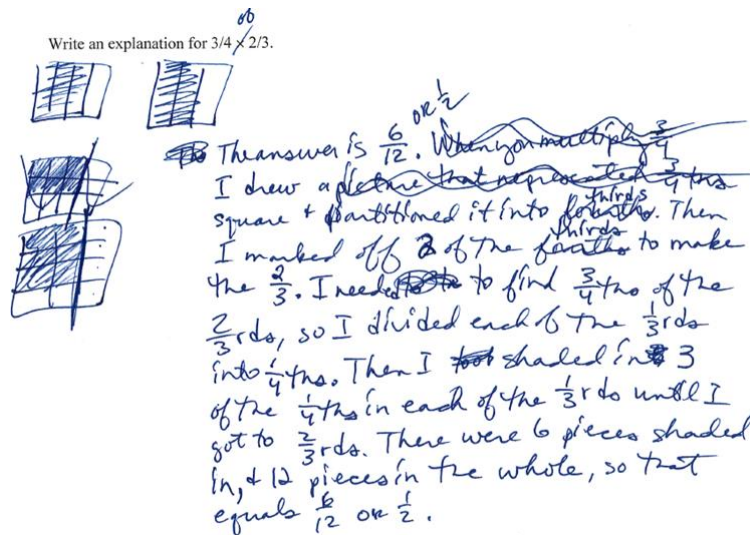 of
Write an explanation for 3/4 x 2/3.
or 1/2
The answer is 6/12. When you multiply 3/4
I drew a picture that represented 3/4 ths
square + partitioned it into fourths. thirds Then
I marked off 2 of the fourths thirds to make
the 2/3. I needed to find 3/4 ths of the
2/3 rds, so I divided each of the 1/3 rds
into 1/4 ths. Then I took shaded in 3
of the 1/4 ths in each of the 1/3 rds until I
got to 2/3 rds. There were 6 pieces shaded
in, + 12 pieces in the whole, so that
equals 6/12 or 1/2.